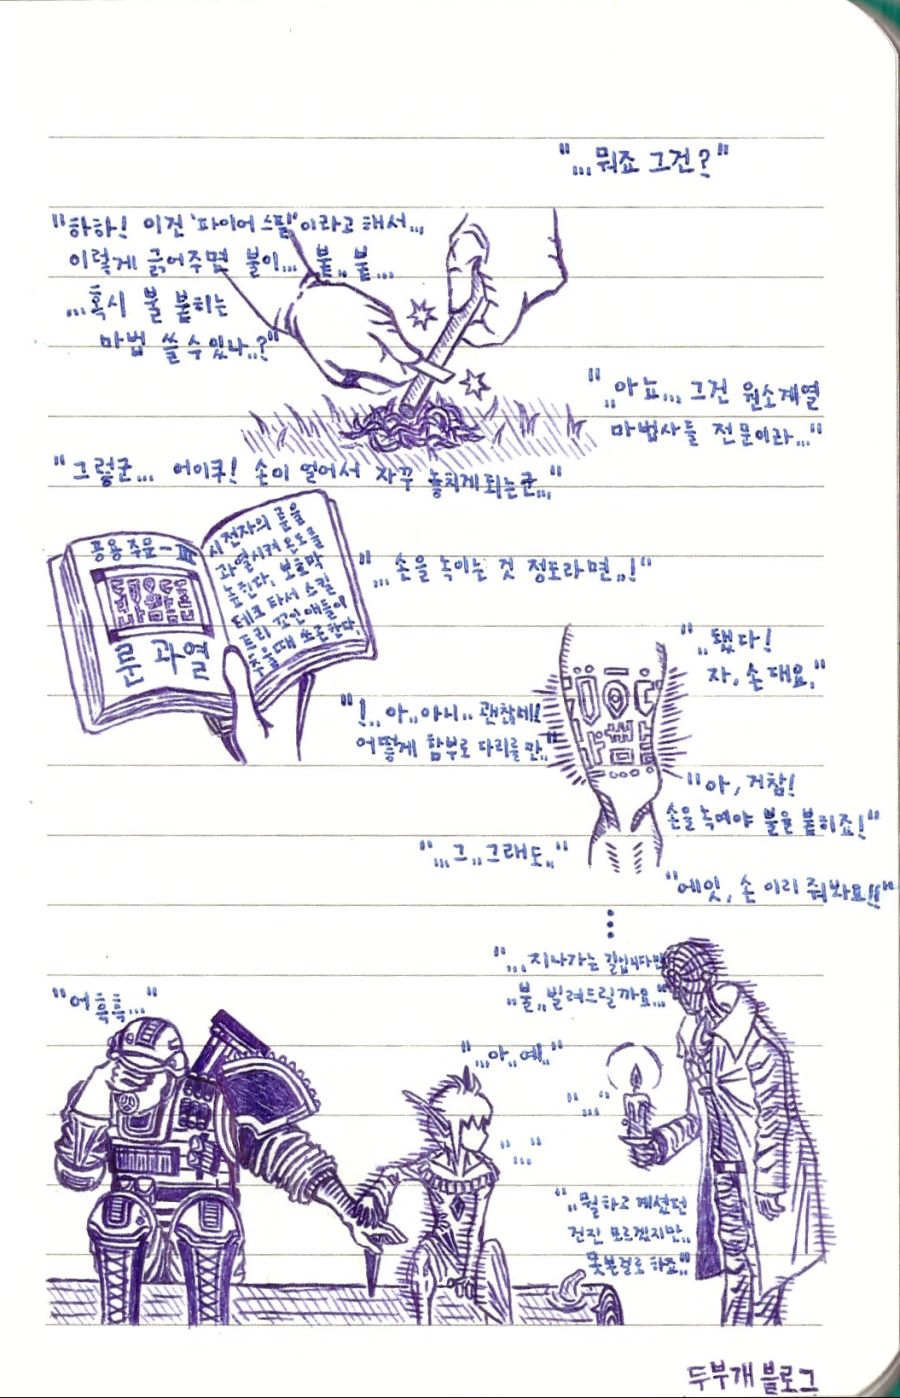 "...뭐죠 그건?"
"하하! 이건 '파이어 스틸'이라고 해서...
이렇게 긁어주면 불이... 붙.. 붙...
...혹시 불 붙히는
마법 쓸 수 있나..?"
"..아뇨... 그건 원소계열
마법사들 전문이라..."
"그렇군... 어이쿠! 손이 얼어서 자꾸 놓치게 되는군..."
공용 주문-III
룬 과열
시전자의 룬을
과열시켜 온도를
높힌다. 보호막
테크 타서 스킬
트리 꼬인 애들이
추울때 쓰곤 한다.
"...손을 녹이는 것 정도라면..!"
"..됐다!
자, 손 대요."
"!..아..아니.. 괜찮네!!
어떻게 함부로 다리를 만.."
"아, 거참!
손을 녹여야 불을 붙히죠!"
"...그..그래도.."
"에잇, 손 이리 줘봐요!!"
"...지나가는 길입니다만
..불..빌려드릴까요..."
"어흑흑..."
"...아..예.."
"..."
"..."
"..뭘 하고 계셨던
건진 모르겠지만..
못본걸로 하죠.."
두부개 블로그